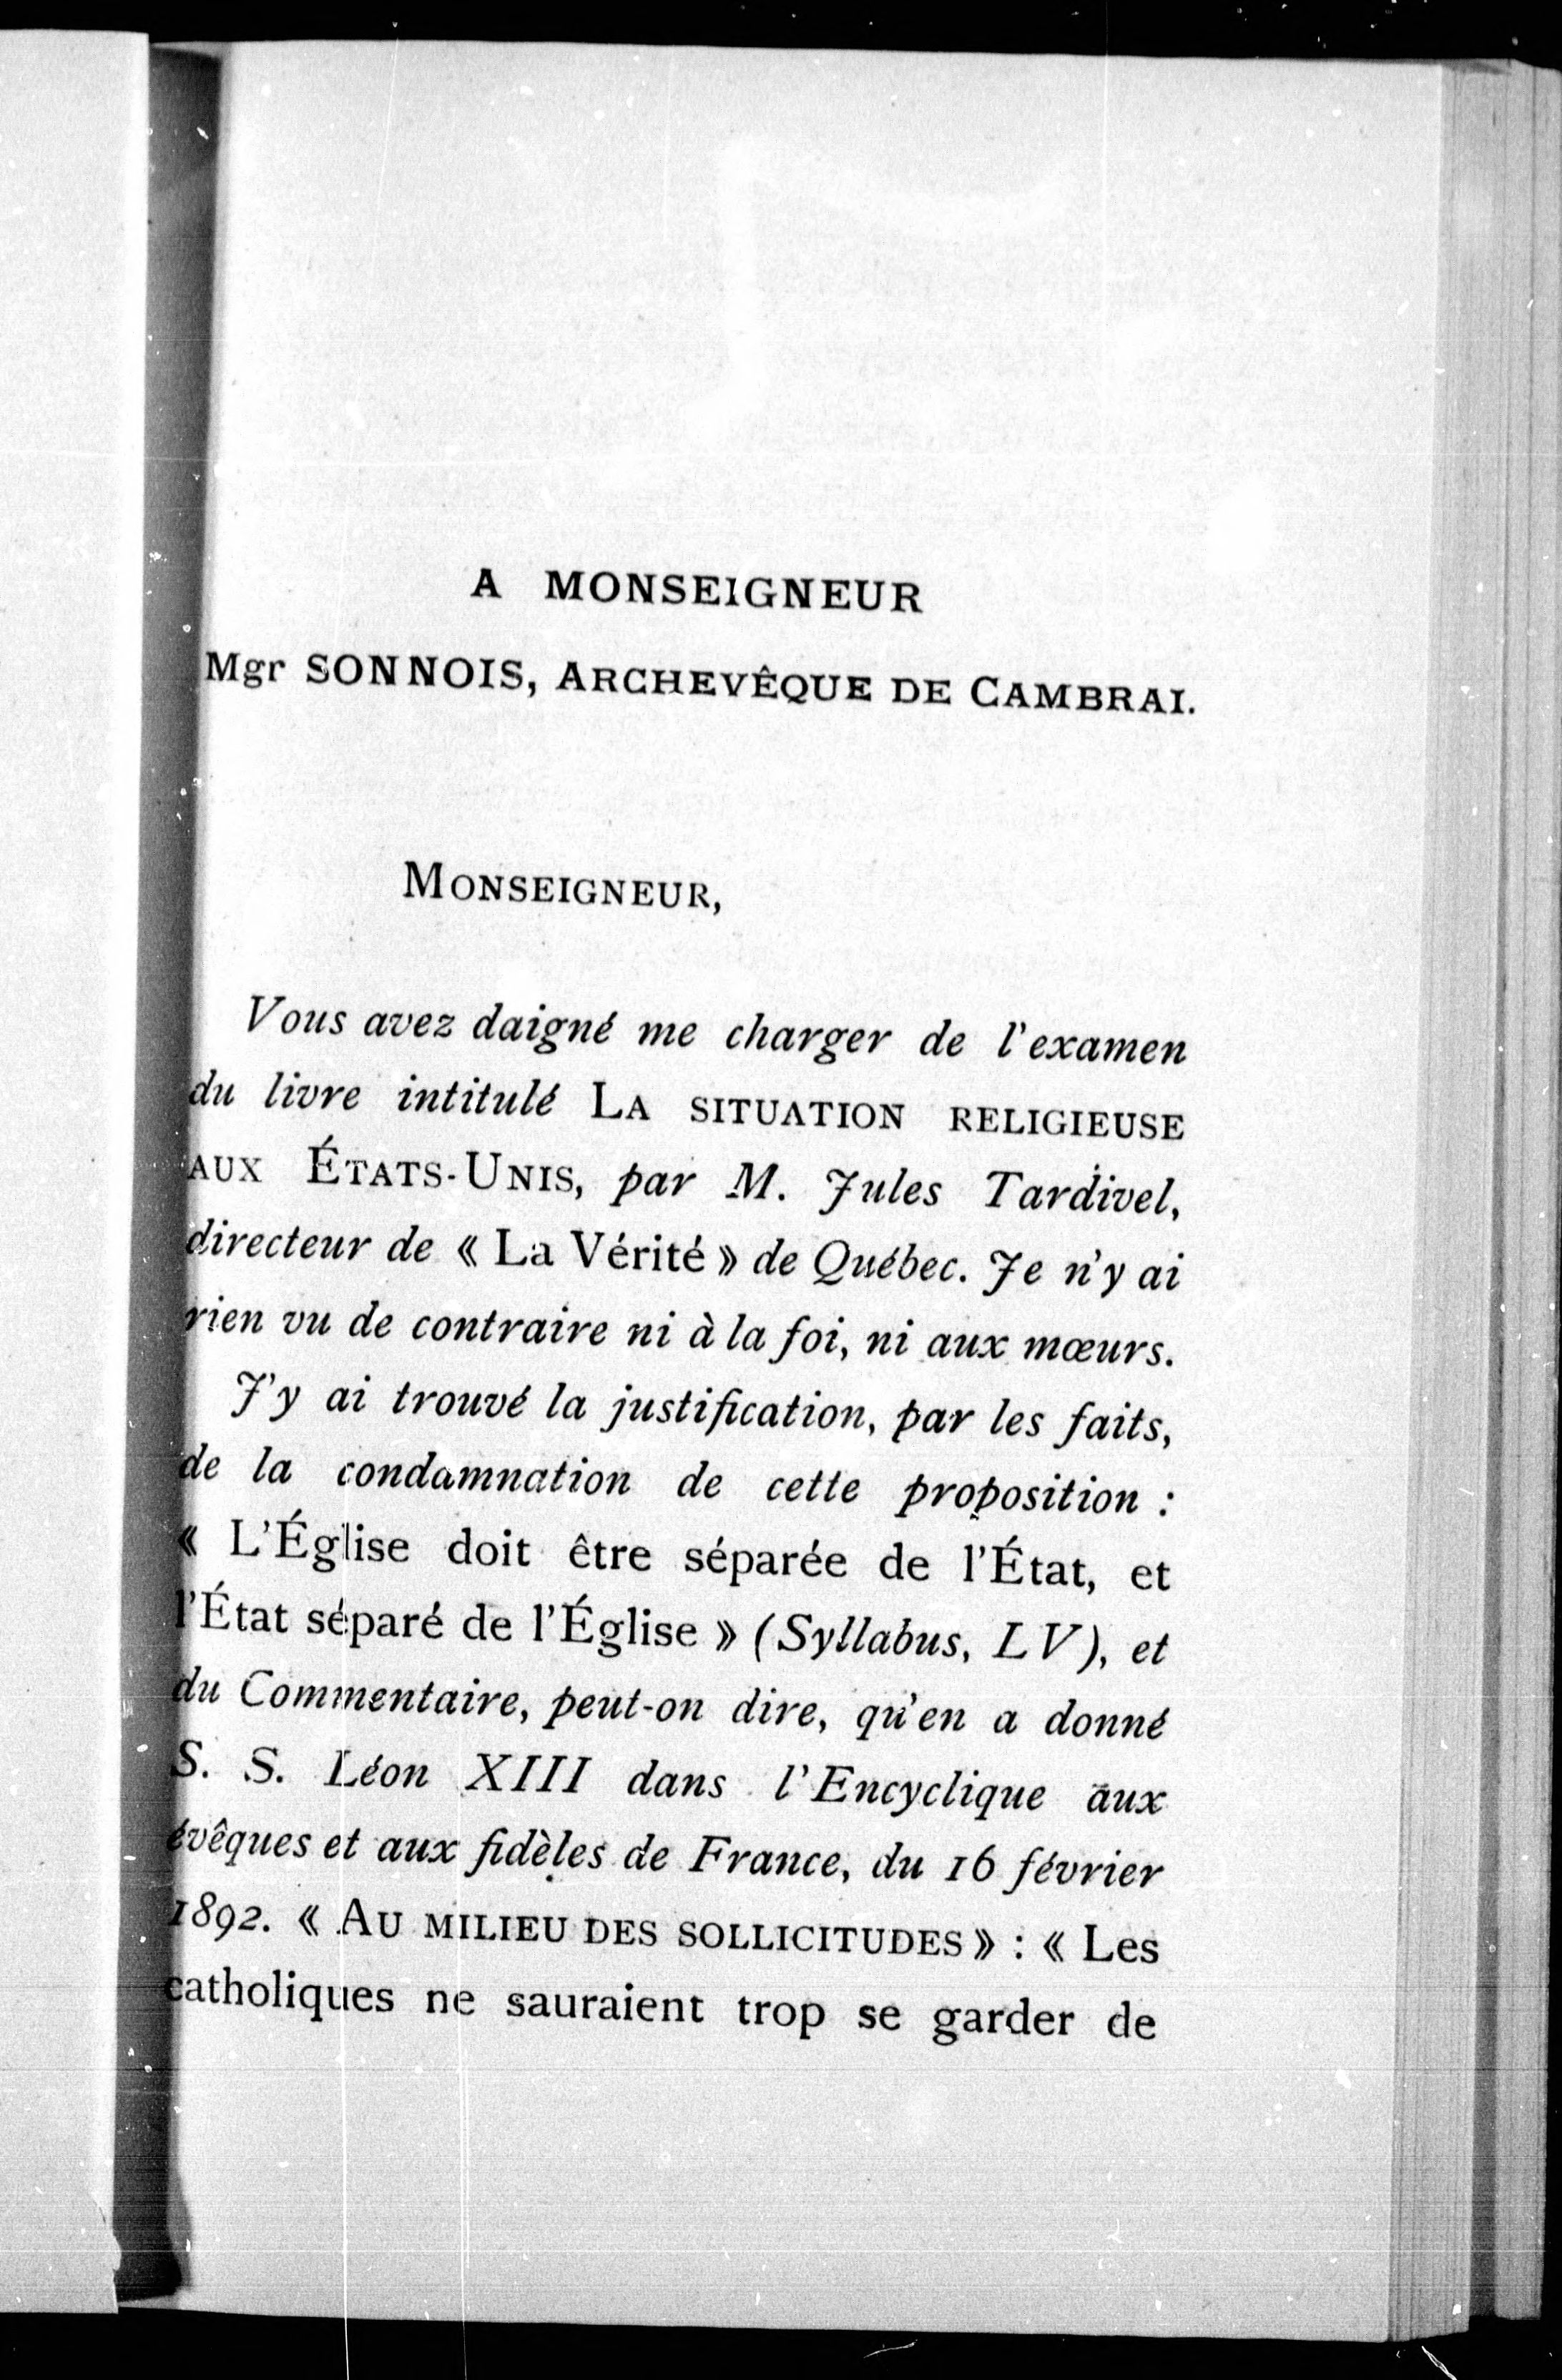 A MONSEIGNEUR
Mgr SONNOIS, ARCHEVÊQUE DE CAMBRAI.
MONSEIGNEUR,
Vous avez daigné me charger de l'examen
du livre intitulé LA SITUATION RELIGIEUSE
AUX ÉTATS-UNIS, par M. Jules Tardivel,
directeur de « La Vérité » de Québec. Je n'y ai
rien vu de contraire ni à la foi, ni aux mœurs.
J'y ai trouvé la justification, par les faits,
de la condamnation de cette proposition :
« L'Église doit être séparée de l'État, et
l'État séparé de l'Église » (Syllabus, LV), et
du Commentaire, peut-on dire, qu'en a donné
S. S. Léon XIII dans l'Encyclique aux
évêques et aux fidèles de France, du 16 février
1892. « AU MILIEU DES SOLLICITUDES » : « Les
catholiques ne sauraient trop se garder de